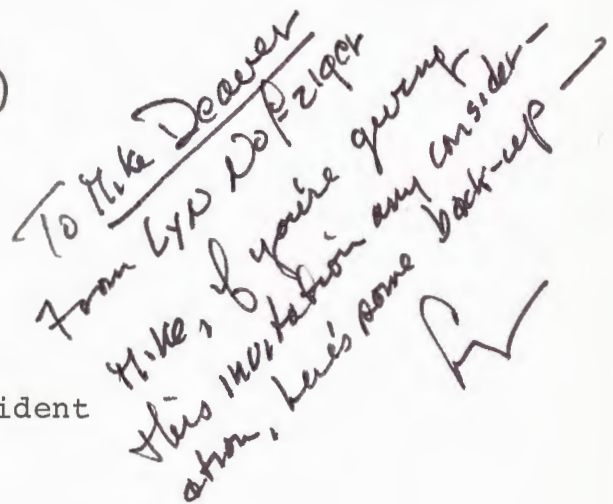 To Mike Deaver
From Lyn Nofziger
Mike, if you're giving
this invitation any consider-
ation, here's some back-up —
ident